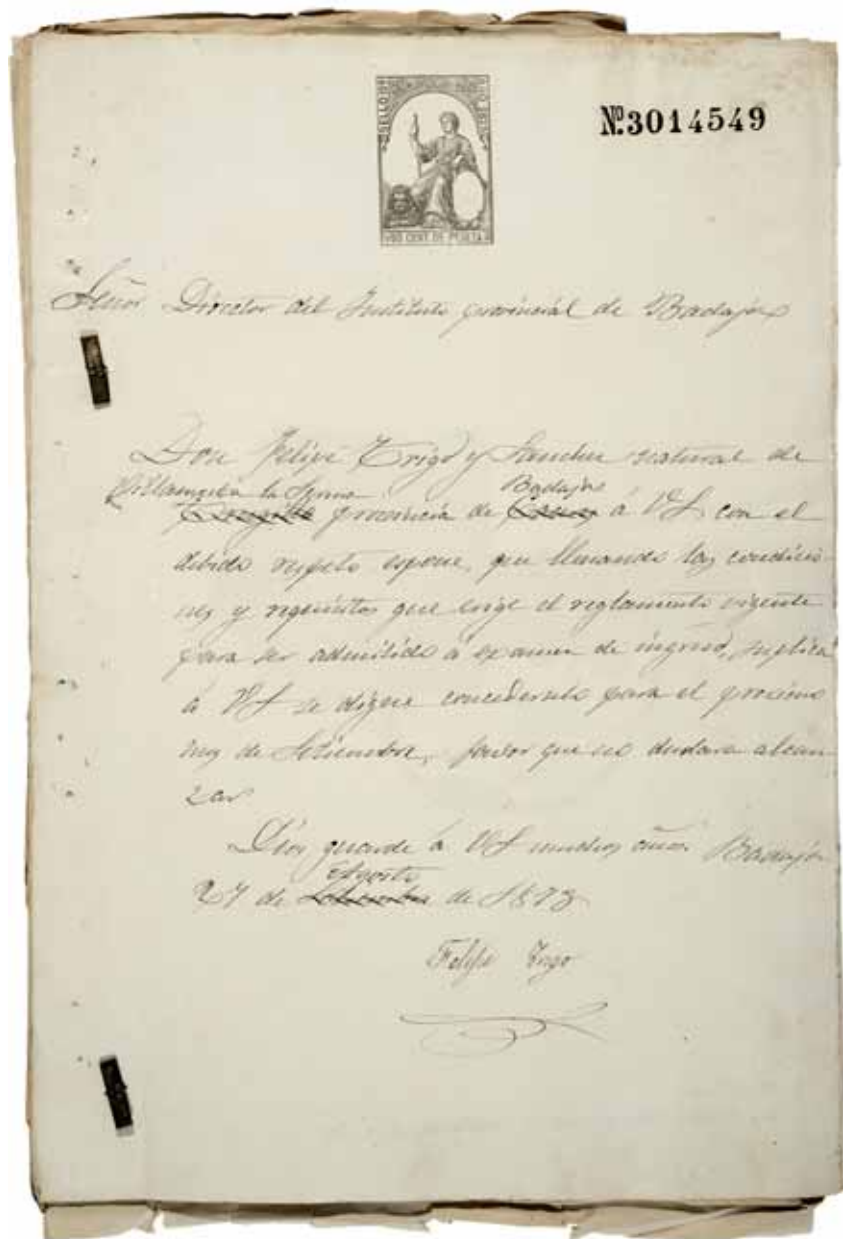 Nº 3014549
50 CENT. DE PESETA
Señor Director del Instituto provincial de Badajoz
Don Felipe Trigo y Sanchez natural de
Villanueva la Serena Badajoz
provincia de á VS con el
debido respeto espone, que llenando las condicio-
nes y requisitos que exige el reglamento vigente
para ser admitido á examen de ingreso, suplica
á VS se digne concederselo para el proximo
mes de Setiembre, favor que no dudara alcan-
zar
Dios guarde á VS muchos años Badajoz
Agosto
27 de Setiembre de 1878
Felipe Trigo